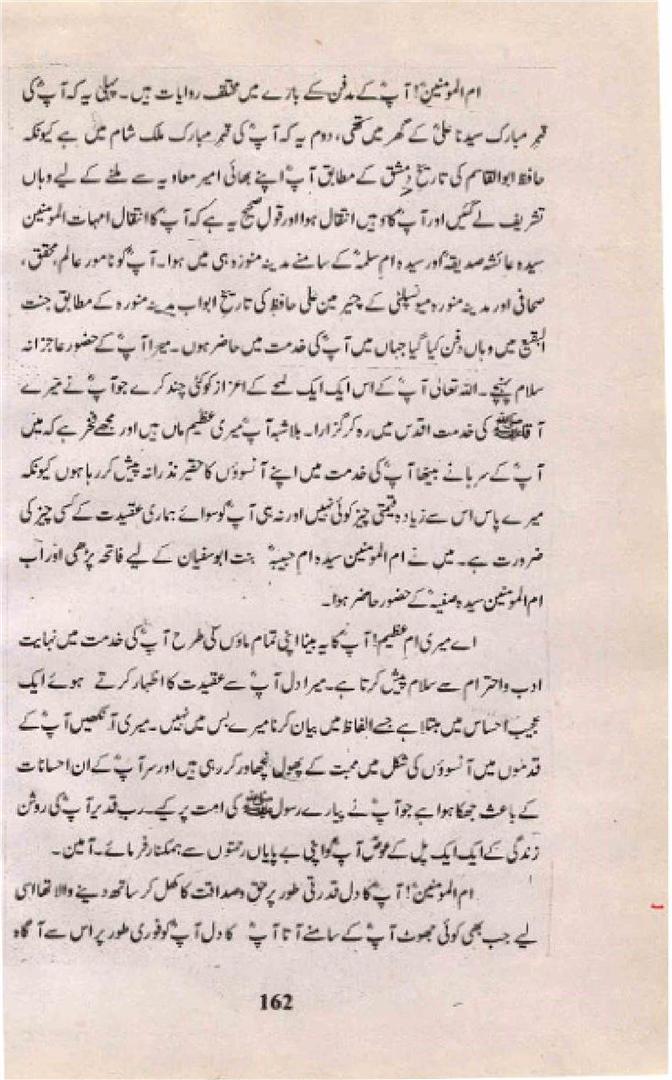 ام المومنینؓ! آپؓ کے مدفن کے بارے میں مختلف روایات ہیں۔ پہلی یہ کہ آپؓ کی
قبر مبارک سیدنا علیؓ کے گھر میں تھی، دوم یہ کہ آپؓ کی قبر مبارک ملک شام میں ہے کیونکہ
حافظ ابوالقاسم کی تاریخ دمشق کے مطابق آپؓ اپنے بھائی امیر معاویہ سے ملنے کے لیے وہاں
تشریف لے گئیں اور آپؓ کا وہیں انتقال ہوا اور قول صحیح یہ ہے کہ آپؓ کا انتقال امہات المومنین
سیدہ عائشہ صدیقہؓ اور سیدہ ام سلمہؓ کے سامنے مدینہ منورہ ہی میں ہوا۔ آپؓ کو نامور عالم، محقق،
صحافی اور مدینہ منورہ میونسپلٹی کے چیئرمین علی حافظ کی تاریخ ابواب مدینہ منورہ کے مطابق جنت
البقیع میں وہاں دفن کیا گیا جہاں میں آپؓ کی خدمت میں حاضر ہوں۔ میرا آپؓ کے حضور عاجزانہ
سلام پہنچے۔ اللہ تعالیٰ آپؓ کے اس ایک ایک لمحے کے اعزاز کو کئی چند کرے جو آپؓ نے میرے
آقا ﷺ کی خدمت اقدس میں رہ کر گزارا۔ بلاشبہ آپؓ میری عظیم ماں ہیں اور مجھے فخر ہے کہ میں
آپؓ کے سرہانے بیٹھا آپؓ کی خدمت میں اپنے آنسوؤں کا حقیر نذرانہ پیش کر رہا ہوں کیونکہ
میرے پاس اس سے زیادہ قیمتی چیز کوئی نہیں اور نہ ہی آپؓ کو سوائے ہماری عقیدت کے کسی چیز کی
ضرورت ہے۔ میں نے ام المومنین سیدہ ام حبیبہؓ بنت ابوسفیان کے لیے فاتحہ پڑھی اور اب
ام المومنین سیدہ صفیہؓ کے حضور حاضر ہوا۔
اے میری ام عظیم! آپؓ کا یہ بیٹا اپنی تمام ماؤں کی طرح آپؓ کی خدمت میں نہایت
ادب و احترام سے سلام پیش کرتا ہے۔ میرا دل آپؓ سے عقیدت کا اظہار کرتے ہوئے ایک
عجیب احساس میں مبتلا ہے جسے الفاظ میں بیان کرنا میرے بس میں نہیں۔ میری آنکھیں آپؓ کے
قدموں میں آنسوؤں کی شکل میں محبت کے پھول نچھاور کر رہی ہیں اور سر آپؓ کے ان احسانات
کے باعث جھکا ہوا ہے جو آپؓ نے پیارے رسول ﷺ کی امت پر کیے۔ رب قدیر آپؓ کی روشن
زندگی کے ایک ایک پل کے عوض آپؓ کو اپنی بے پایاں رحمتوں سے ہمکنار فرمائے۔ آمین۔
ام المومنینؓ! آپؓ کا دل قدرتی طور پر حق و صداقت کا کھل کر ساتھ دینے والا تھا اسی
لیے جب بھی کوئی جھوٹ آپؓ کے سامنے آتا آپؓ کا دل آپؓ کو فوری طور پر اس سے آگاہ
162